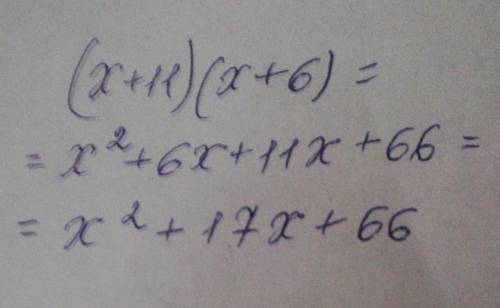 (x+11)(x+6) =
= x²+6x+11x+66 =
= x²+17x+66